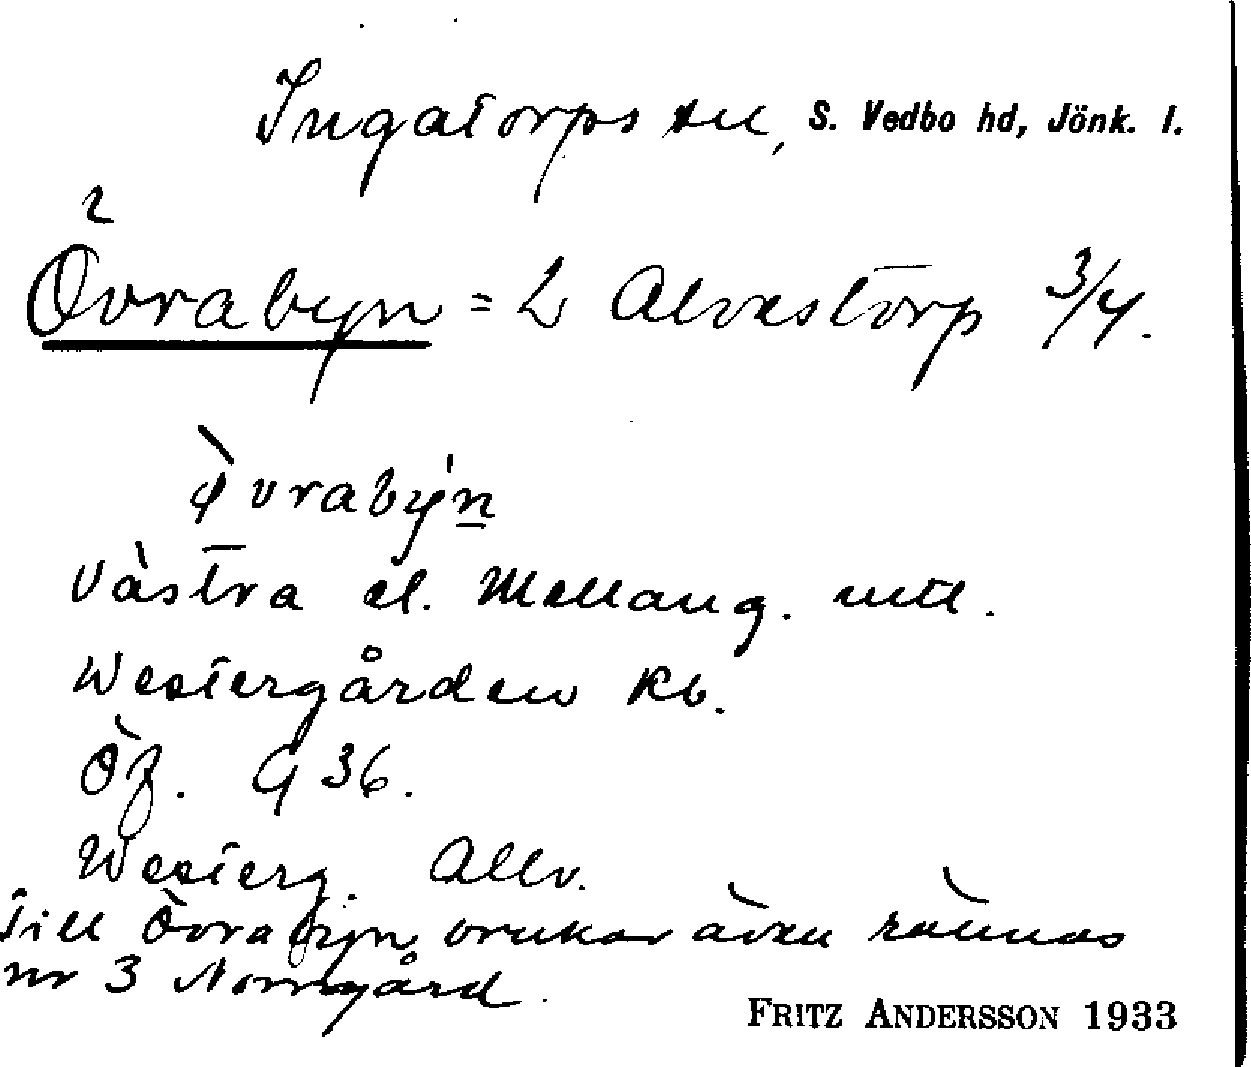 Ingatorps sn, S. Vedbo hd, Jönk. l.
2
Övrabyn = 2 Alvastorp 3/4.
ø̀vrabýn
Västra el. Mellang. mtl.
Westergården Kb.
Öf. G 36.
Westerg. Allv.
Till Övrabyn brukar även räknas
nr 3 Norrgård.
FRITZ ANDERSSON 1933